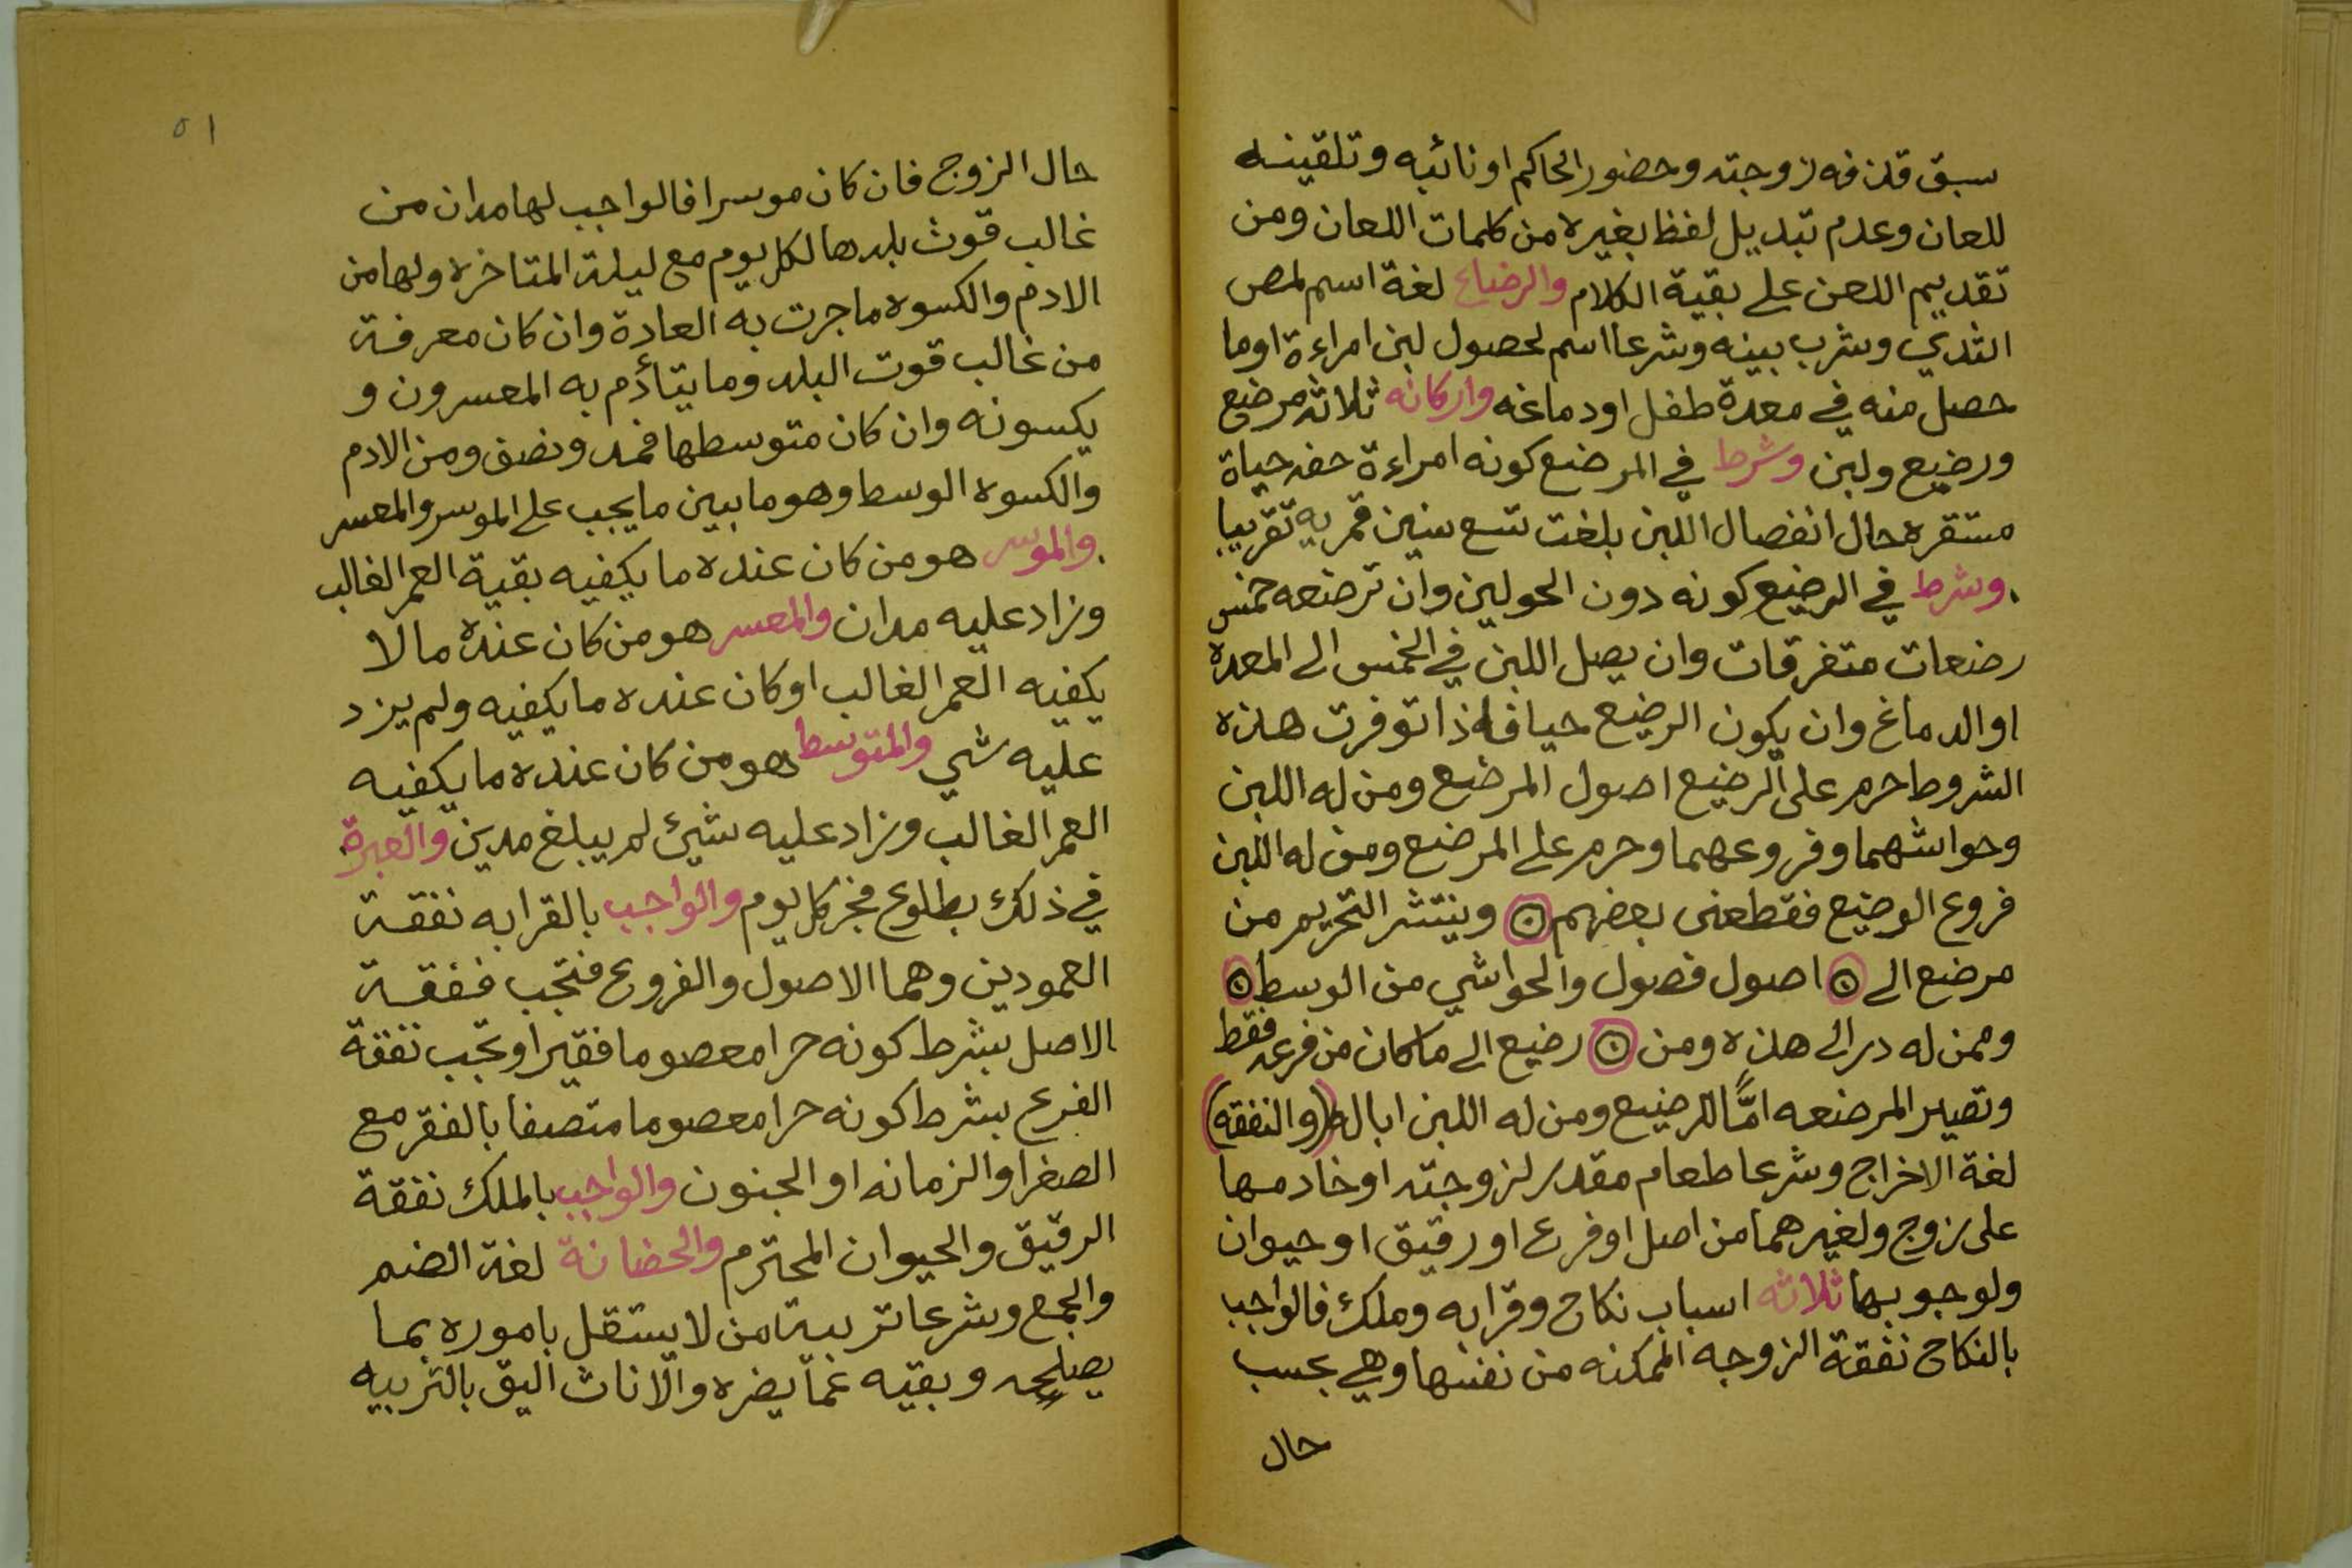 سبق قذفه زوجته وحضور الحاكم او نائبه وتلقينه
للعان وعدم تبديل لفظ بغيره من كلمات اللعان ومن
تقديم اللعن على بقية الكلام والرضاع لغة اسم لمص
الثدي وشرب بينه وشرعا اسم لحصول لبن امراءة اوما
حصل منه في معدة طفل او دماغه واركانه ثلاثة مرضع
ورضيع ولبن وشرط في المرضع كونه امراءة حفه حياة
مستقره حال انفصال اللبن بلغت تسع سنين قمريه تقريبا
وشرط في الرضيع كونه دون الحولين وان ترضعه خمس
رضعات متفرقات وان يصل اللبن في الخمس الى المعده
او الدماغ وان يكون الرضيع حيا فاذا توفرت هذه
الشروط حرم على الرضيع اصول المرضع ومن له اللبن
وحواشهما وفروعهما وحرم على المرضع ومن له اللبن
فروع الوضيع فقط عنى بعضهم ۞ وينتشر التحريم من
مرضع الى ۞ اصول فصول والحواشي من الوسط ۞
وممن له در الى هذه ومن ۞ رضيع الى ماكان من فرعه فقط
وتصير المرضعه امّاً للرضيع ومن له اللبن ابا له (والنفقه)
لغة الاخراج وشرعا طعام مقدر لزوجته او خادمها
على زوج ولغيرهما من اصل او فرع او رقيق او حيوان
ولوجوبها ثلاثه اسباب نكاح وقرابه وملك فالواجب
بالنكاح نفقة الزوجه الممكنه من نفسها وهي بحسب
حال
٥١
حال الزوج فان كان موسرا فالواجب لها مدان من
غالب قوث بلدها لكل يوم مع ليلة المتاخره ولها من
الادم والكسوه ماجرت به العادة وان كان معرفة
من غالب قوت البلد وما يتأدم به المعسرون و
يكسونه وان كان متوسطها فمد ونصف ومن الادم
والكسوه الوسط وهو ما بين ما يجب على الموسر والمعسر
والموسر هو من كان عنده ما يكفيه بقية العمر الغالب
وزاد عليه مدان والمعسر هو من كان عنده مالا
يكفيه العمر الغالب او كان عنده ما يكفيه ولم يزد
عليه شي والمتوسط هو من كان عنده ما يكفيه
العمر الغالب وزاد عليه شيئ لم يبلغ مدين والعبرة
في ذلك بطلوع فجر كل يوم والواجب بالقرابه نفقة
العمودين وهما الاصول والفروع فتجب ففقة
الاصل بشرط كونه حرا معصوما فقيرا وتجب نفقة
الفرع بشرط كونه حرا معصوما متصفا بالفقر مع
الصغر او الزمانه او الجنون والواجب بالملك نفقة
الرقيق والحيوان المحترم والحضانة لغة الضم
والجمع وشرعا تربية من لا يستقل باموره بما
يصلحه وبقيه عما يضره والاناث اليق بالتربيه